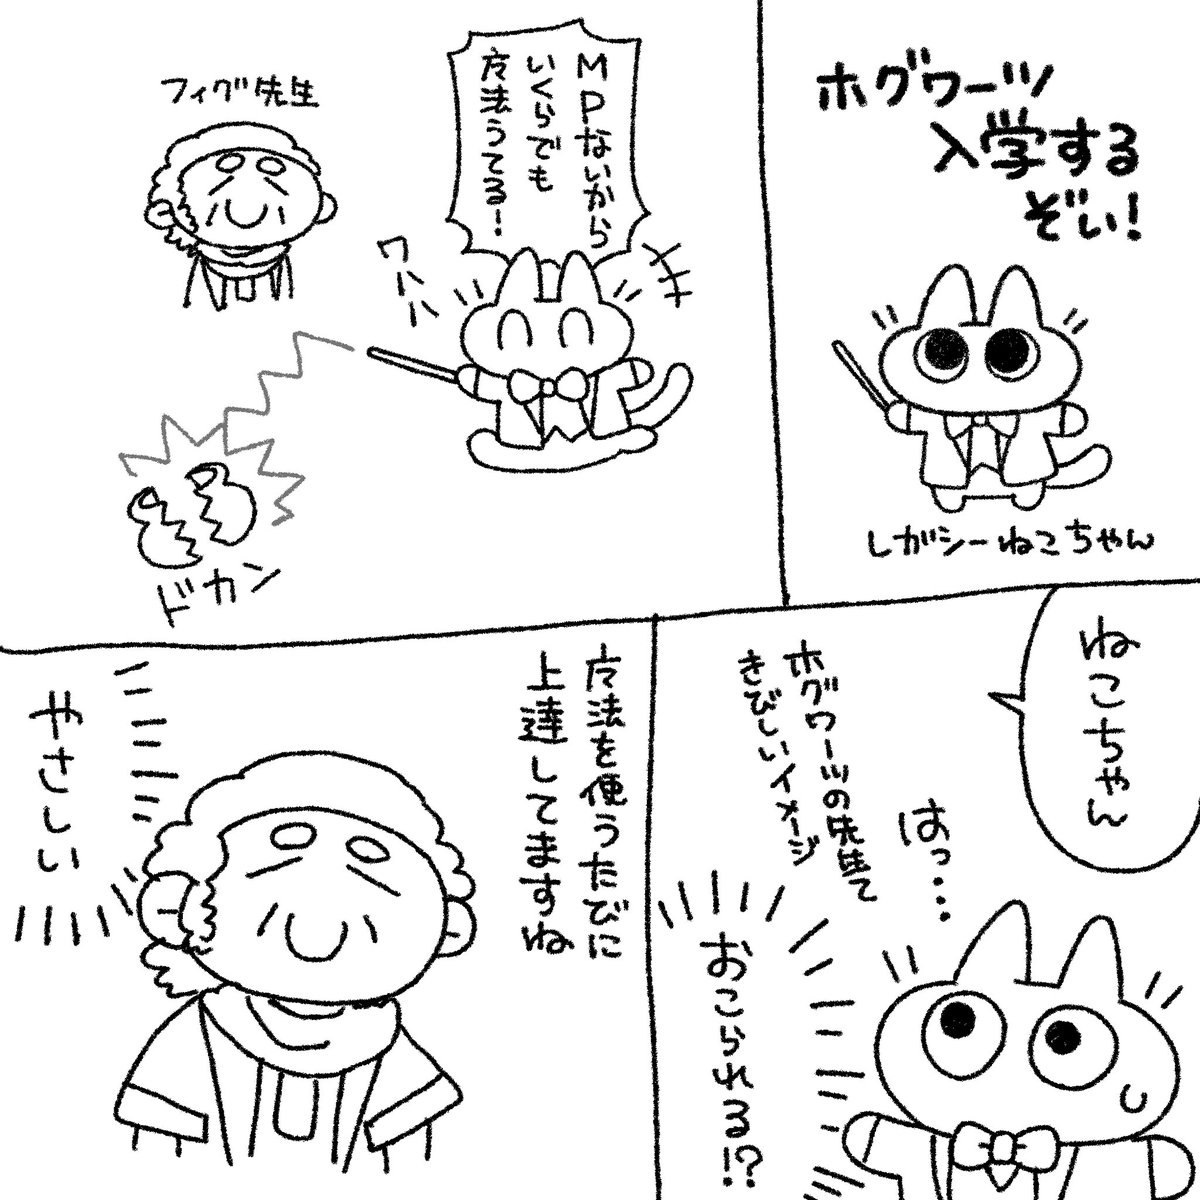 ホグワーツ
入学する
ぞい!
しがシーねこちゃん
MPないから
いくらでも
方法うてる!
ワハハ
フィグ先生
ドカン
ねこちゃん
はっ…
ホグワーツの先生て
きびしいイメージ
おこられる!?
方法を使うたびに
上達してますね
やさしい